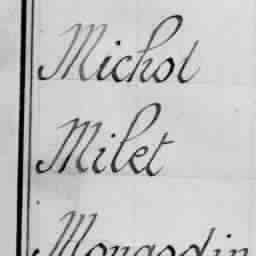 Michol
Milet
Mongodin